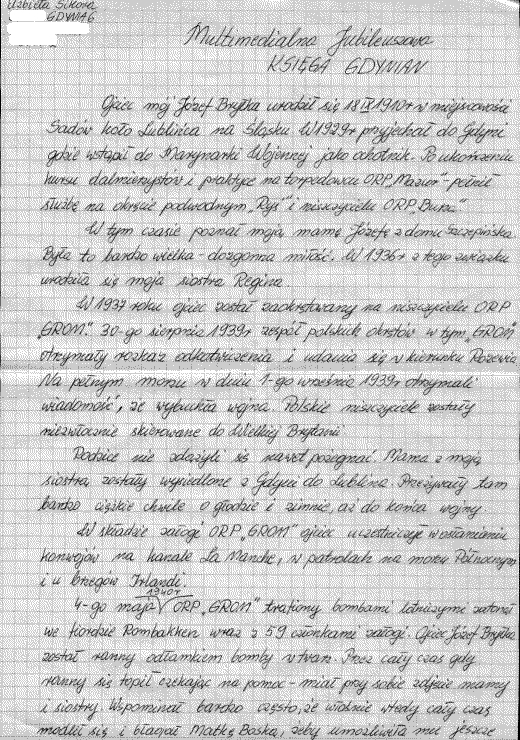 Elżbieta Sikora
GDYNIA 6
Multimedialna Jubileuszowa
KSIĘGA GDYNIAN
Ojciec mój Józef Brytka urodził się 18 IX 1910r w miejscowości
Sadów koło Lublińca na Śląsku. W 1929r przyjechał do Gdyni
gdzie wstąpił do Marynarki Wojennej jako ochotnik. Po ukończeniu
kursu dalmierzystów i praktyce na torpedowcu ORP „Mazur" - pełnił
służbę na okręcie podwodnym „Ryś" i niszczycielu ORP „Burza"
W tym czasie poznał moją mamę Józefę z domu Szczepińska
Była to bardzo wielka - dozgonna miłość. W 1936r z tego związku
urodziła się moja siostra Regina.
W 1937 roku ojciec został zaokrętowany na niszczycielu ORP
„GROM". 30-go sierpnia 1939r zespół polskich okrętów w tym „GROM"
otrzymały rozkaz odkotwiczenia i udania się w kierunku Rozewia
Na pełnym morzu w dniu 1-go września 1939r otrzymali
wiadomość, że wybuchła wojna. Polskie niszczyciele zostały
niezwłocznie skierowane do Wielkiej Brytanii
Rodzice nie zdążyli się nawet pożegnać. Mama z moją
siostrą zostały wysiedlone z Gdyni do Lublina. Przeżywały tam
bardzo ciężkie chwile o głodzie i zimnie, aż do końca wojny
W składzie załogi ORP „GROM" ojciec uczestniczył w osłanianiu
konwojów na kanale La Manche, w patrolach na morzu Północnym
i u brzegów Irlandi.
4-go maja 1940r ORP „GROM" trafiony bombami lotniczymi zatonął
we fiordzie Rombakken wraz z 59 członkami załogi. Ojciec Józef Brytka
został ranny odłamkiem bomby w twarz. Przez cały czas gdy
ranny się topił czekając na pomoc - miał przy sobie zdjęcie mamy
i siostry. Wspominał bardzo często, że właśnie wtedy cały czas
modlił się i błagał Matkę Boską, żeby umożliwiła mu jeszcze